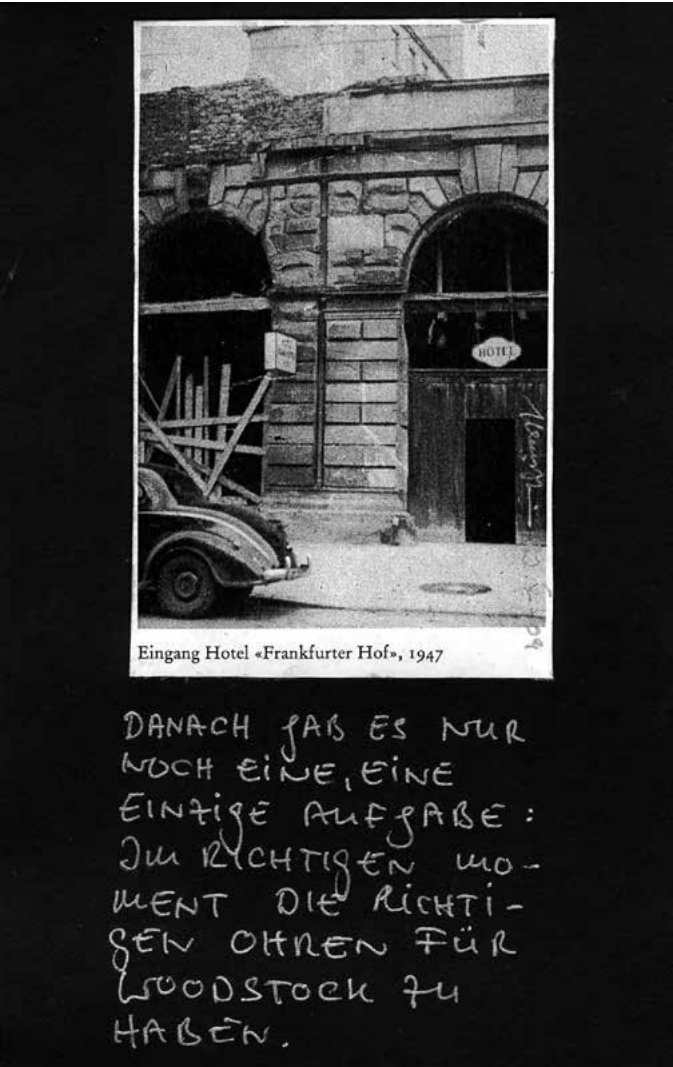 HOTEL
Eingang Hotel «Frankfurter Hof», 1947
DANACH GAB ES NUR
NOCH EINE, EINE
EINZIGE AUFGABE:
IM RICHTIGEN MO-
MENT DIE RICHTI-
GEN OHREN FÜR
WOODSTOCK ZU
HABEN.